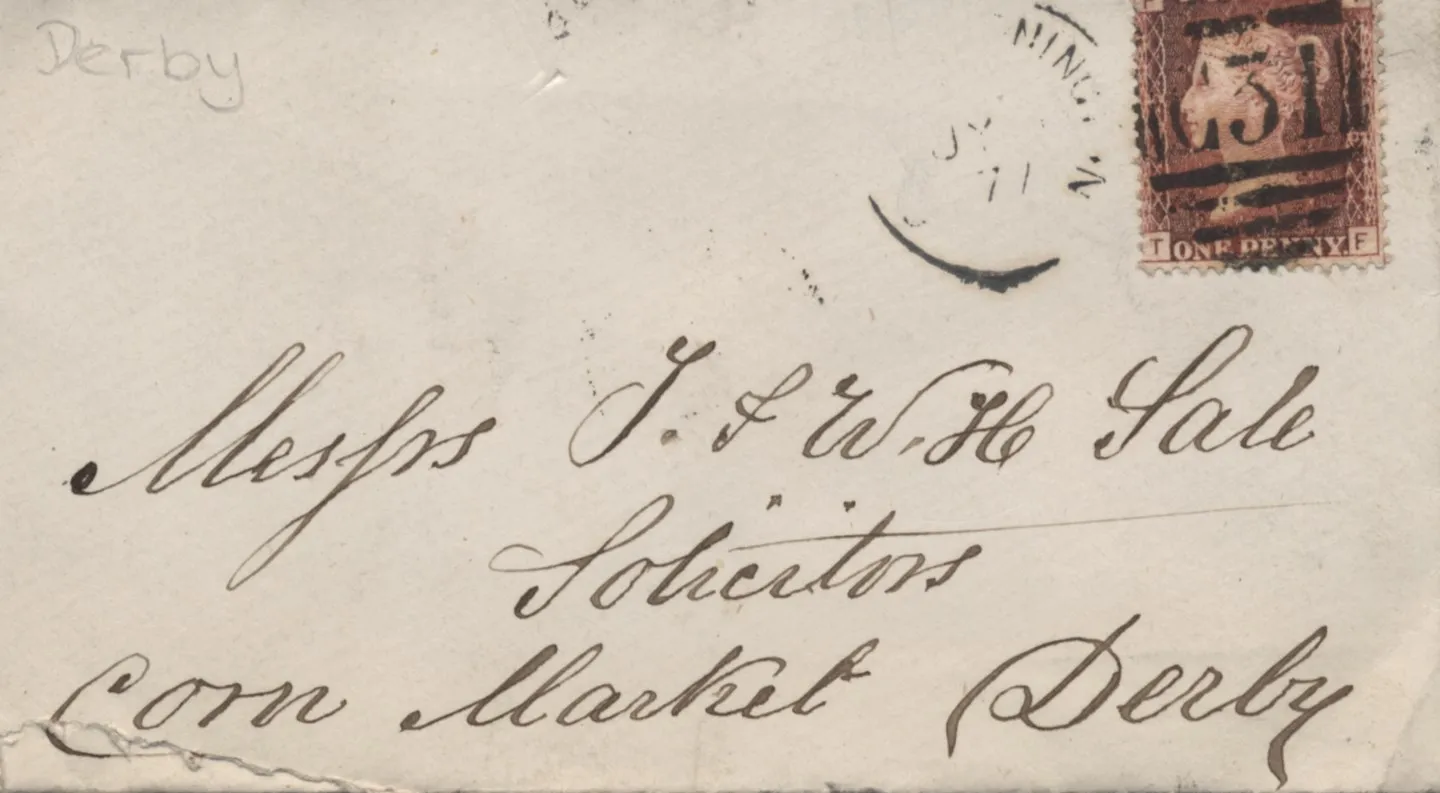 Derby
NING
N.
JY
71
C31
T ONE PENNY F
Messrs J. & W. H Sale
Solicitors
Corn Market Derby